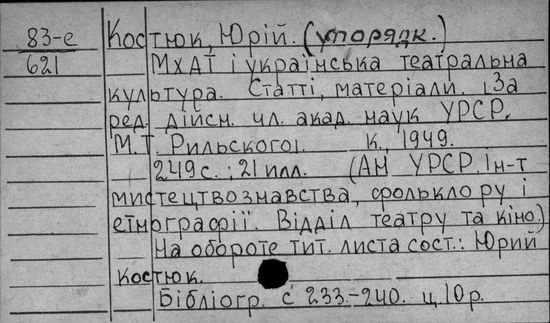 83-е Костюк, Юрій. (упорядк.)
621 МХАТ і українська театральна
культура. Статті, матеріали. За
ред. дійсн. чл. акад. наук УРСР.
М.Т. Рильского. К., 1949.
249 с.; 21 илл. (АН УРСР. Ін-т
мистецтвознавства, фольклору і
етнографії. Відділ театру та кіно.)
На обороте тит. листа сост.: Юрий
Костюк.
Бібліогр. с 233.-240. ц. 10 р.